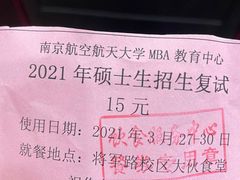 南京航空航天大学 MBA 教育中心
2021 年硕士生招生复试
15 元
使用日期：2021 年 3 月 27-30 日
就餐地点：将军路校区大伙食堂